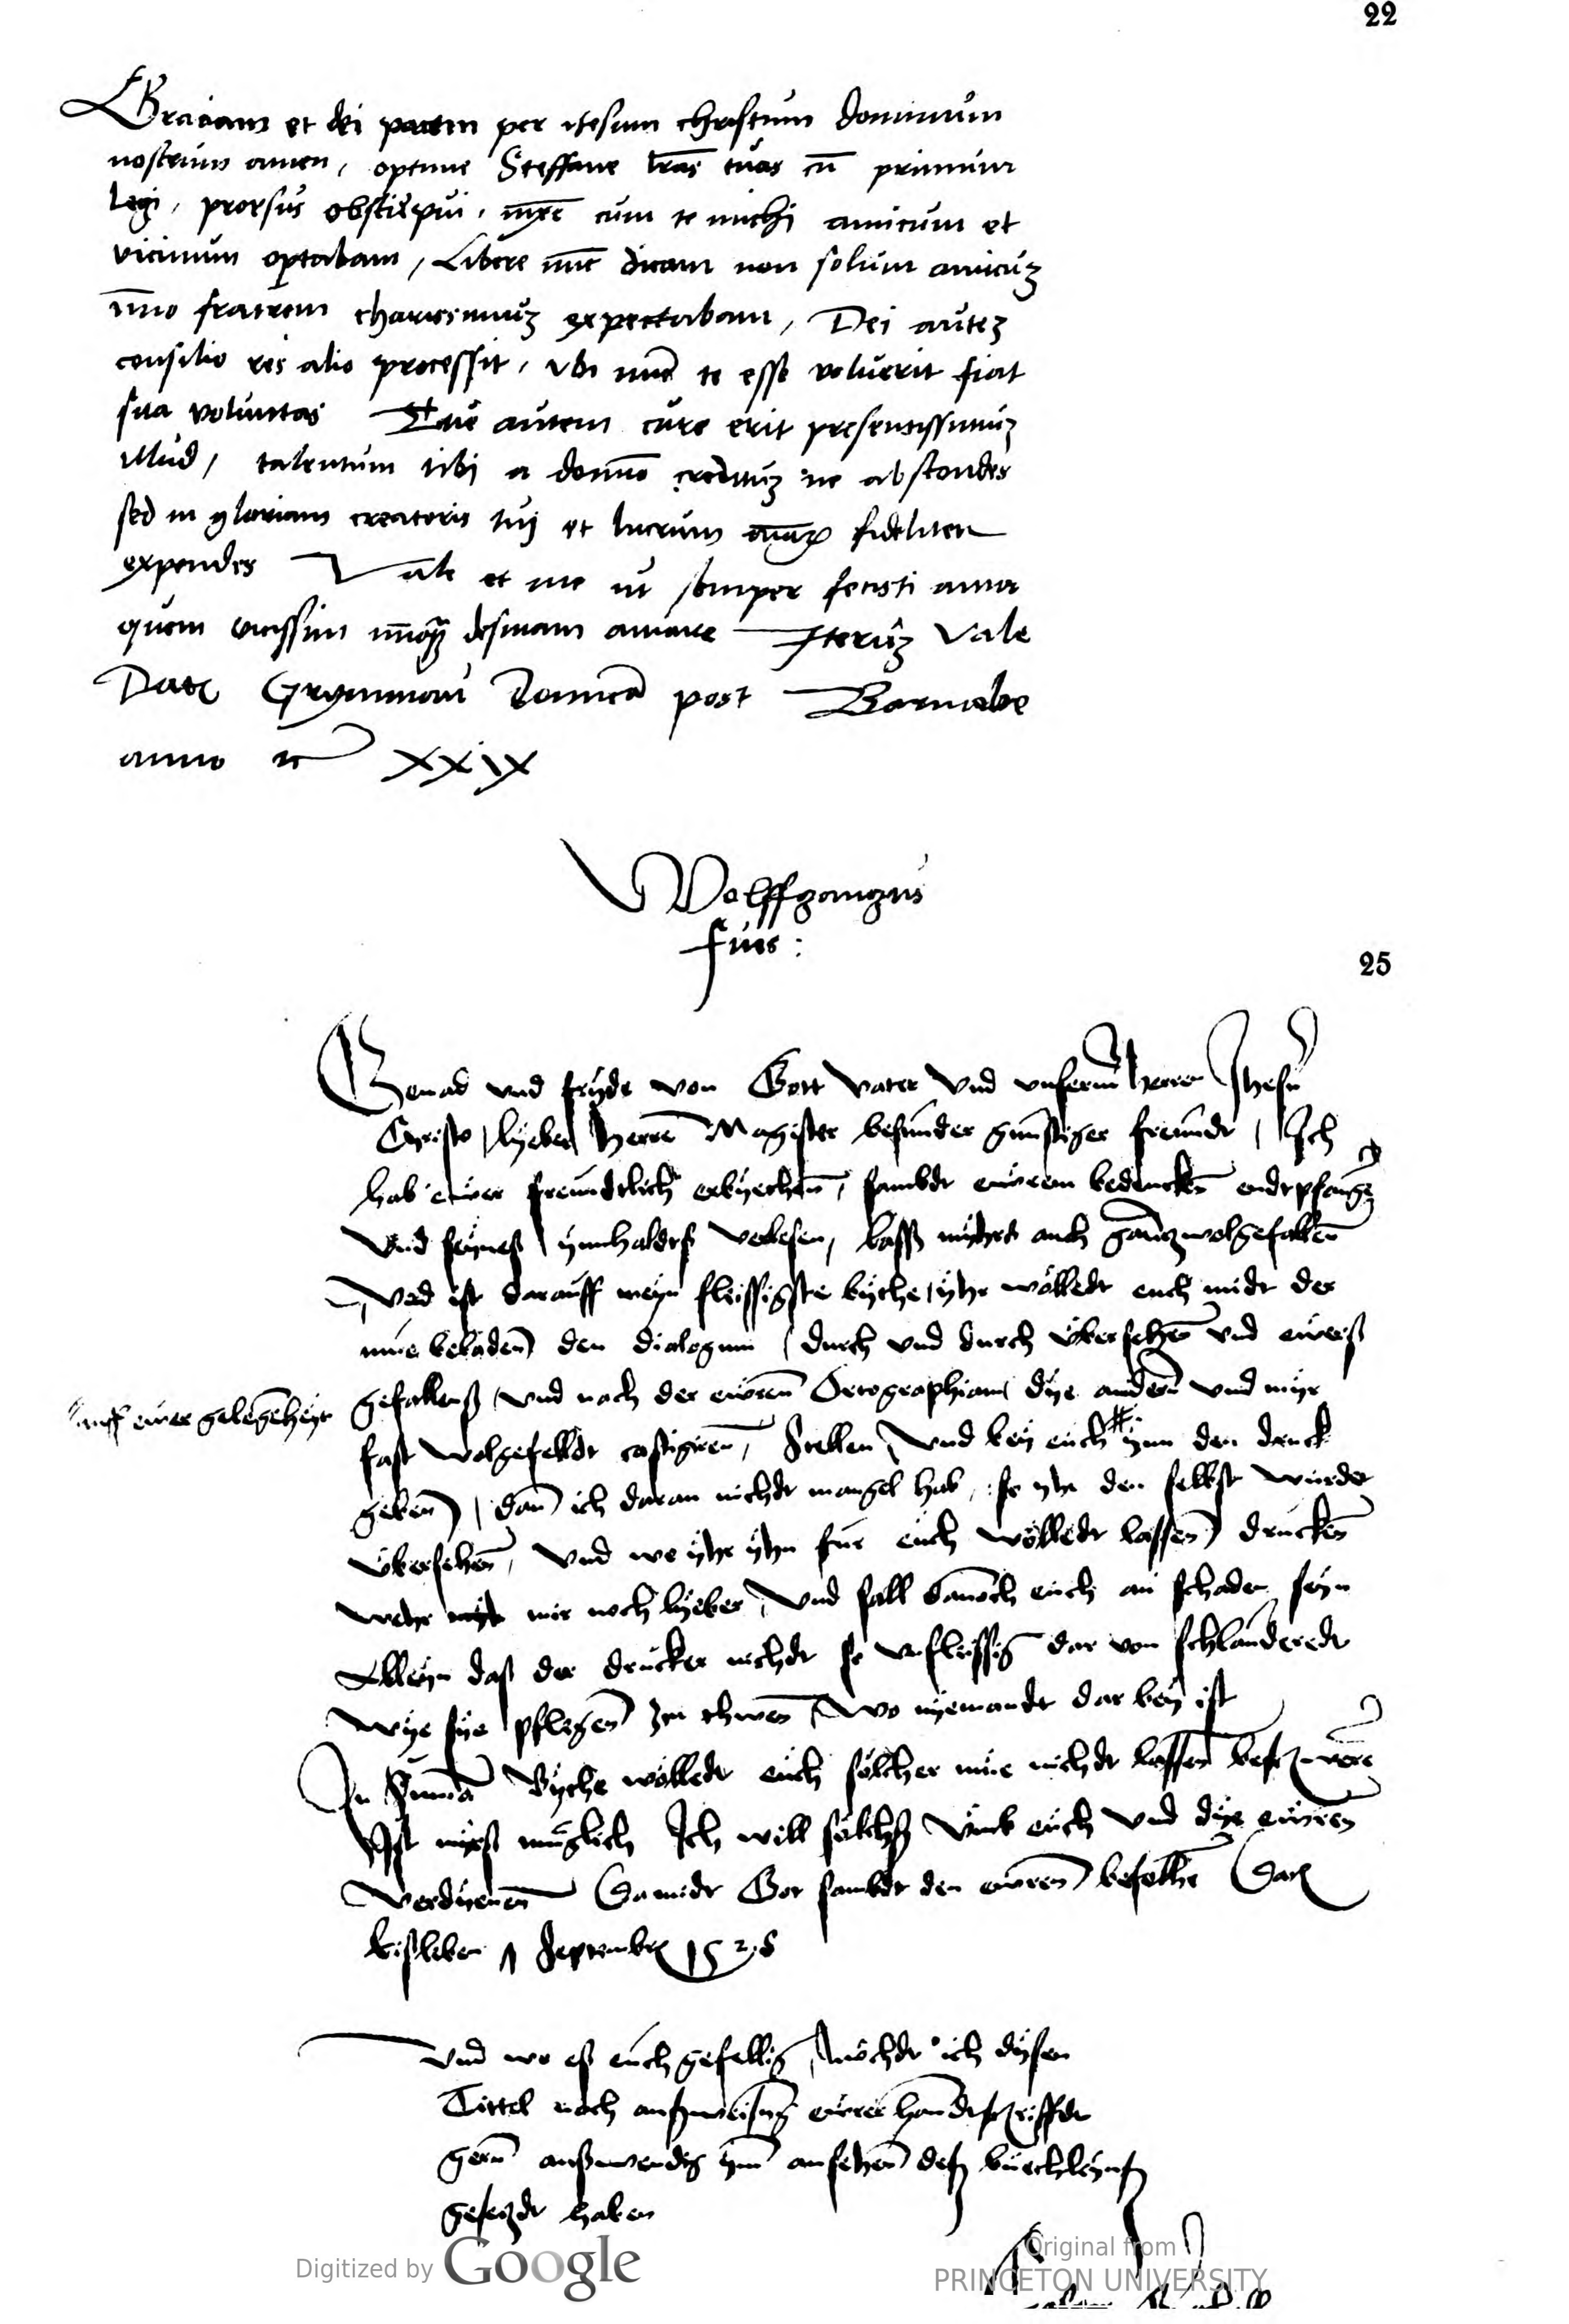 22
Graciam et dei pacem per ihesum christum dominum
nostrum amen, optime Steffane lr̄as tuas cū primum
legi, prorsus obstupui, cum te michi amicum et
vicinum optabam, Libere nūc dicam non solum amicuʒ
īmo fratrem charissimuʒ expectabam, Dei auteʒ
consilio res alio processit, vbi nūc te esse voluerit fiat
sua voluntas Tue autem cure erit presentissimuʒ
illud, talentum tibi a domīo credituʒ ne abscondes
sed in gloriam creatoris tui et lucrum fideliter
expendes Vale et me ut semper fecisti ama
quem vicissim desinam amare Iteruʒ Vale
Dat Grymmaw domīca post Barnabe
anno XXIX
Wolffgangus
fues :
25
Genad und fryde von Gott vater und unserm herren Jhesu
Christo, lyeber herre Magister besunder gunstiger freundt, Ich
hab ewer freundtlich erbyethen, sambdt ewrem bedencken endtpfangen
und seynesz ynnhaldesz verlesen, lassz myhrs auch gancz wolgefallen
Und ist darauff meyn fleissigste bythe, yhr wölledt euch midt der
mue beladen den dialogum, durch und durch übersehen und ewersz
gefallensz, und nach der ewren Ortographiam dye andern und myr
auff ewer gelegenheyt
fast wolgefelldt castigiren, stellen, und bey euch # ynn den druck
geben, dan ich daran nichdt mangel hab, so yhr den selbst würdet
übersehen, und wo yhr yhn fur euch wölledt lassen drucken
wehr mir noch lyeber, und sall dannoch euch an schaden seyn
Alleyn das der drucker nichdt so unfleissig dar von schlauderedt
wye sye pflegen zu thwen, wo nyemandt dar bey ist
In Summa Bythe wölledt euch sölcher mue nichdt lassen beschweren
Ist myrsz muglich Ich will sölchsz umb euch und dye ewren
verdyenen Damidt Got sambdt den ewren befolhen Dat
Eisleben Septembr 1528
Und wo esz euch gefellig, möchdt ich dysen
Tittel nach auszweisung ewrer handtschriffdt
gern auszwendig ynn ansehen desz buechleynsz
geseczdt haben
Digitized by Google
Original from
PRINCETON UNIVERSITY